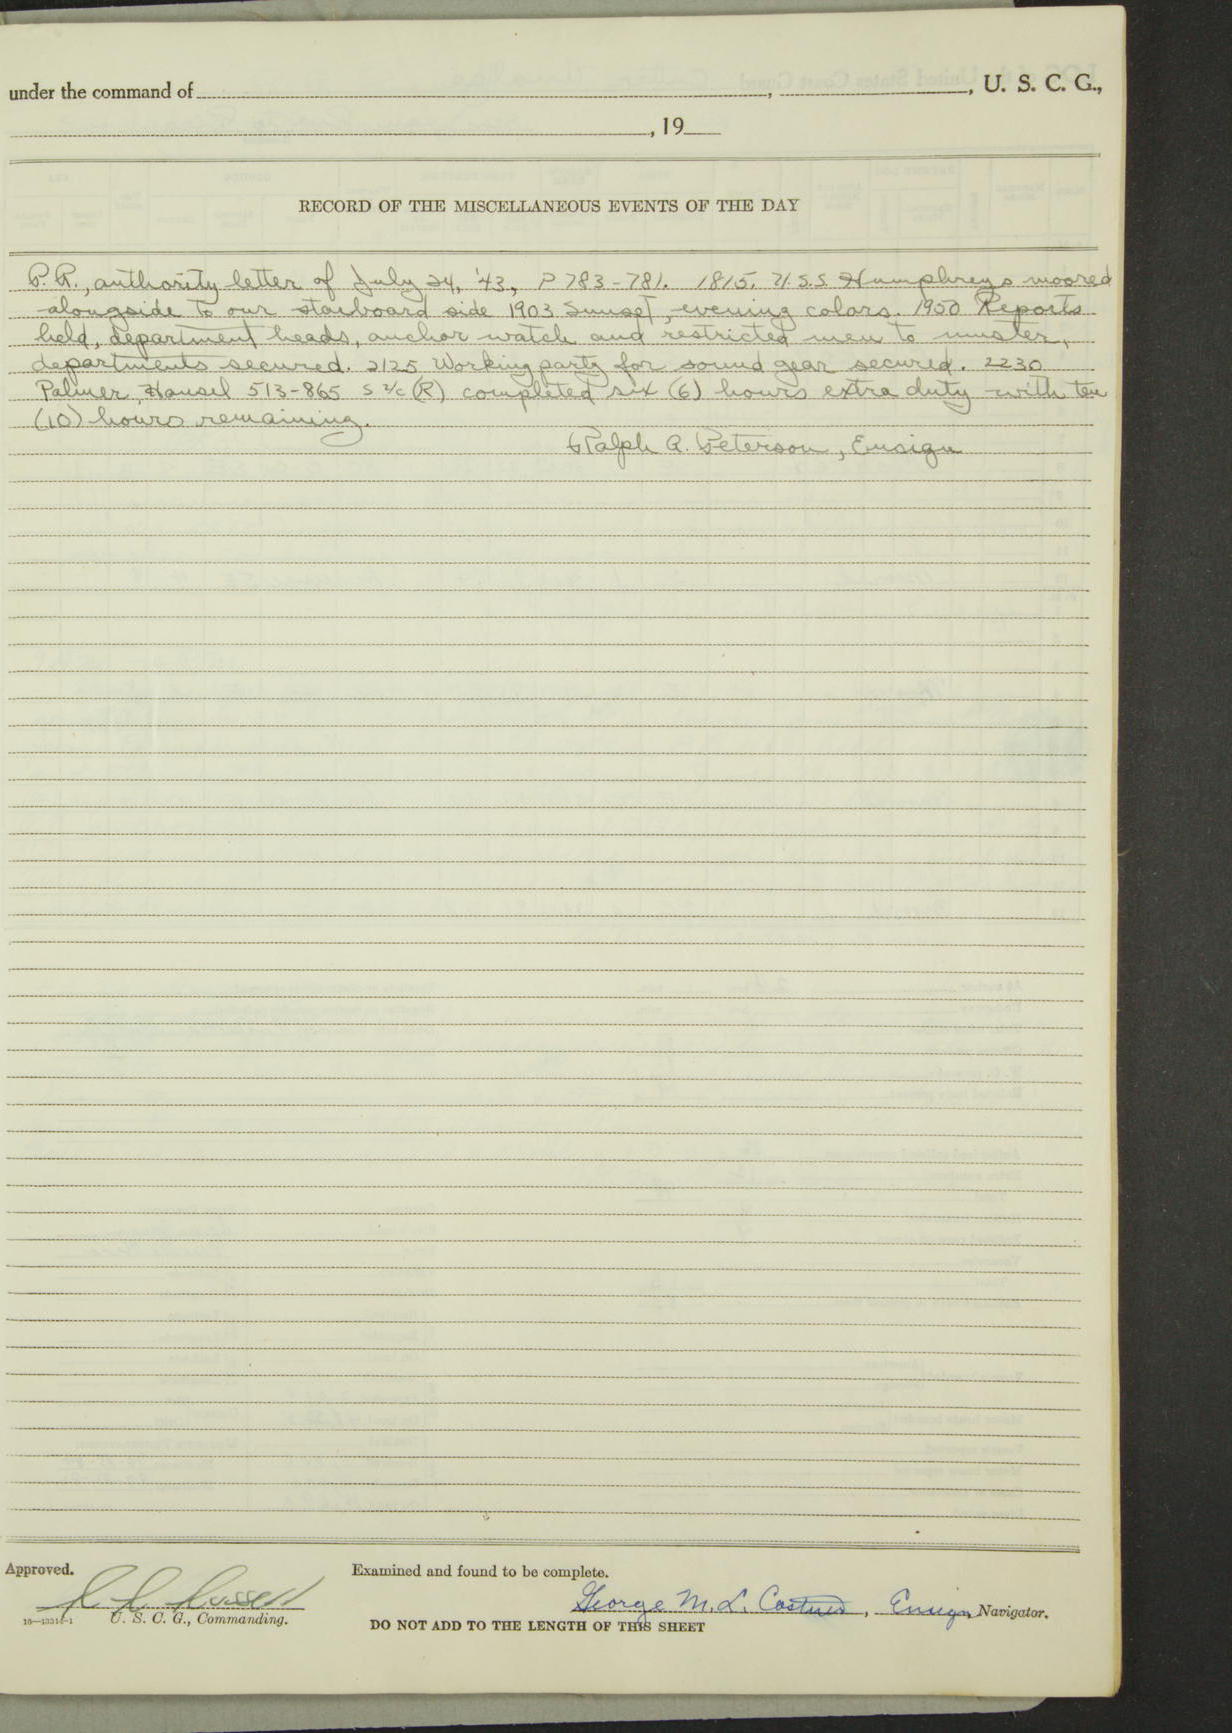 under the command of , , U. S. C. G.,
, 19
RECORD OF THE MISCELLANEOUS EVENTS OF THE DAY
P.R., authority letter of July 24, '43, P 783-781. 1815. U.S.S. Humphreys moored
alongside to our starboard side 1903 Sunset, evening colors. 1950 Reports
held, department heads, anchor watch and restricted men to muster,
departments secured. 2125 Working party for sound gear secured. 2230
Palmer, Hansel 513-865 S 2/c (R) completed six (6) hours extra duty with ten
(10) hours remaining.
Ralph A. Peterson, Ensign
Approved. Examined and found to be complete.
George M. L. , Ensign Navigator.
16—13314-1 U. S. C. G., Commanding.
DO NOT ADD TO THE LENGTH OF THIS SHEET